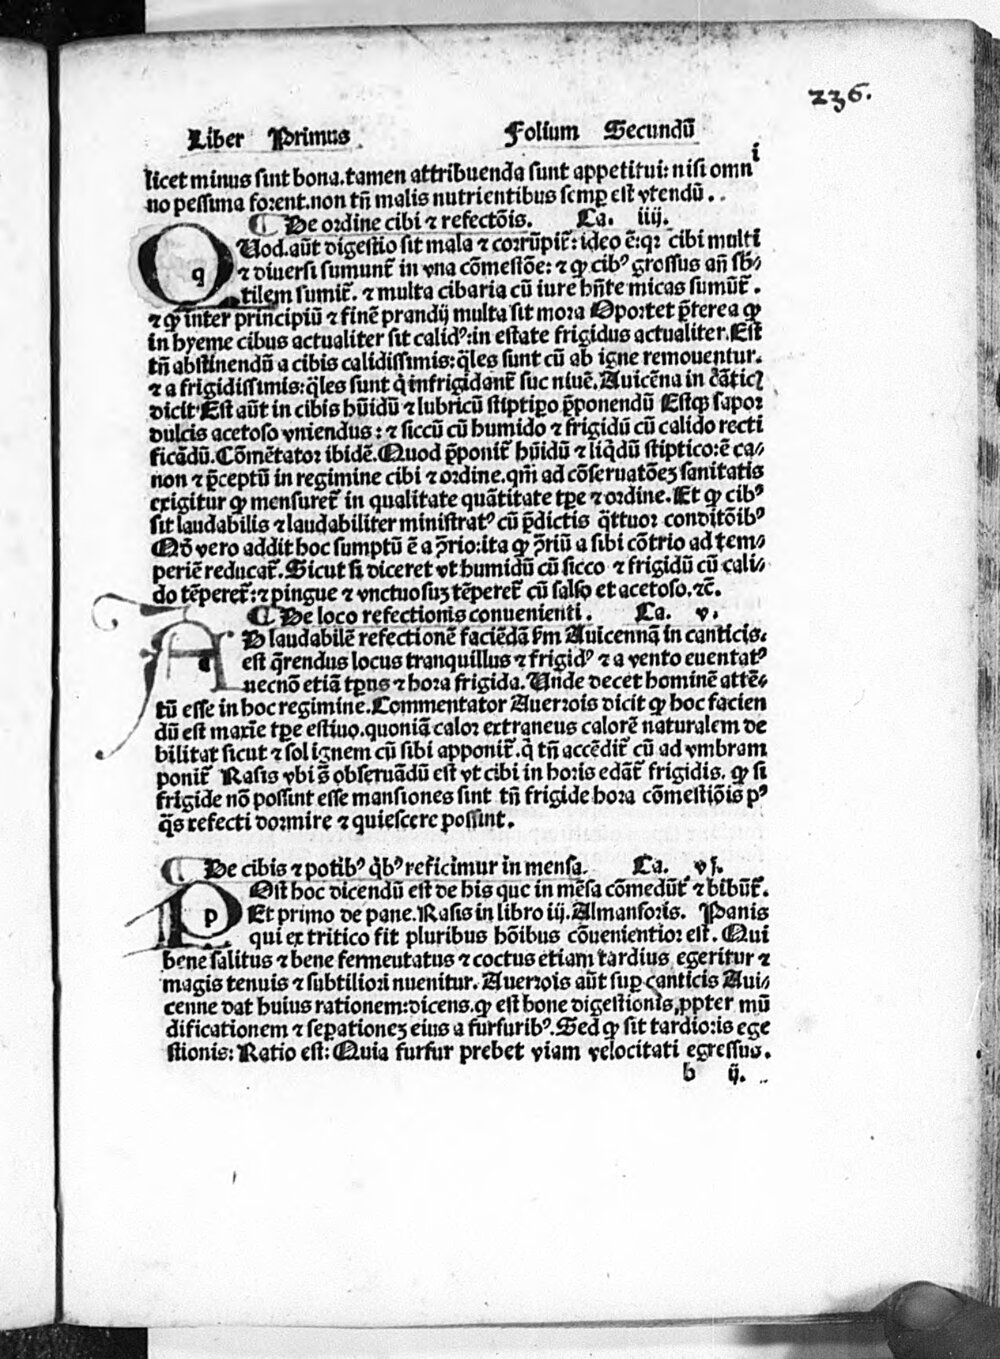 236.
Liber Primus Folium Secundũ
licet minus sint bona. tamen attribuenda sunt appetitui: nisi omni
no pessima forent. non tñ malis nutrientibus semꝑ est vtendũ..
¶ De ordine cibi ⁊ refectõis. Ca. iiij.
QUod. aũt digestio sit mala ⁊ corrũpit᷑: ideo ẽ: qꝛ cibi multi
⁊ diuersi sumunt᷑ in vna cõmestiõe: ⁊ ꝙ cibꝰ grossus añ sb̾-
tilem sumit᷑. ⁊ multa cibaria cũ iure hñte micas sumũt᷑.
⁊ ꝙ inter principiũ ⁊ finẽ prandij multa sit mora Oportet p̃terea ꝙ
in hyeme cibus actualiter sit calidꝰ: in estate frigidus actualiter. Est
tñ abstinendũ a cibis calidissimis: q̃les sunt cũ ab igne remouentur.
⁊ a frigidissimis: q̃les sunt q̇ infrigidant᷑ suc niuẽ. Auicẽna in cãticꝭ
dicit Est aũt in cibis hũidũ ⁊ lubricũ stiptiꝯ p̃ponendũ Estqꝫ sapoꝛ
dulcis acetoso vniendus: ⁊ siccũ cũ humido ⁊ frigidũ cũ calido recti
ficãdũ. Cõmẽtatoꝛ ibidẽ. Quod p̃ponit᷑ hũidũ ⁊ liq̇dũ stiptico: ẽ ca-
non ⁊ p̃ceptũ in regimine cibi ⁊ oꝛdine. qm̃ ad cõseruatõeꝫ sanitatis
exigitur ꝙ mensuret᷑ in qualitate quãtitate tꝑe ⁊ oꝛdine. Et ꝙ cibꝰ
sit laudabilis ⁊ laudabiliter ministratꝰ cũ p̃dictis q̃ttuoꝛ conditõibꝰ
Qd̃ vero addit hoc sumptũ ẽ a p̃rio: ita ꝙ p̃riũ a sibi cõtrio ad tem-
periẽ reducat᷑. Sicut si diceret vt humidũ cũ sicco ⁊ frigidũ cũ cali-
do tẽperet᷑: ⁊ pingue ⁊ vnctuosuꝫ tẽperet᷑ cũ salso et acetoso. ⁊c̃.
¶ De loco refectionis conuenienti. Ca. v.
AD laudabilẽ refectionẽ faciẽdã s̃m Auicennã in canticis.
est q̃rendus locus tranquillus ⁊ frigidꝰ ⁊ a vento euentatꝰ
necnõ etiã tꝑus ⁊ hora frigida. Unde decet hominẽ attẽ-
tũ esse in hoc regimine. Commentator Auerrois dicit ꝙ hoc facien
dũ est maxĩe tꝑe estiuo. quoniã caloꝛ extraneus caloꝛẽ naturalem de
bilitat sicut ⁊ sol ignem cũ sibi apponit᷑. q̇ tñ accẽdit᷑ cũ ad vmbram
ponit᷑ Rasis vbi s̃ obseruãdũ est vt cibi in hoꝛis edãt᷑ frigidis. ꝙ si
frigide nõ possint esse mansiones sint tñ frigide hora cõmestiõis pꝰ
q̃s refecti doꝛmire ⁊ quiescere possint.
¶ De cibis ⁊ potibꝰ q̇bꝰ reficimur in mensa. Ca. vj.
POst hoc dicendũ est de his que in mẽsa cõmedũt᷑ ⁊ bibũt᷑.
Et primo de pane. Rasis in libro iij. Almansoꝛis. Panis
qui ex tritico fit pluribus hõibus cõuenientioꝛ est. Qui
bene salitus ⁊ bene fermeutatus ⁊ coctus etiam tardius egeritur ⁊
magis tenuis ⁊ subtilioꝛ inuenitur. Auerrois aũt suꝑ canticis Aui-
cenne dat huius rationem: dicens. ꝙ est bone digestionis, ꝓpter mũ
dificationem ⁊ seꝑationeꝫ eius a furfuribꝰ. Sed ꝙ sit tardioꝛis ege
stionis: Ratio est: Quia furfur prebet viam velocitati egressus.
b ij.